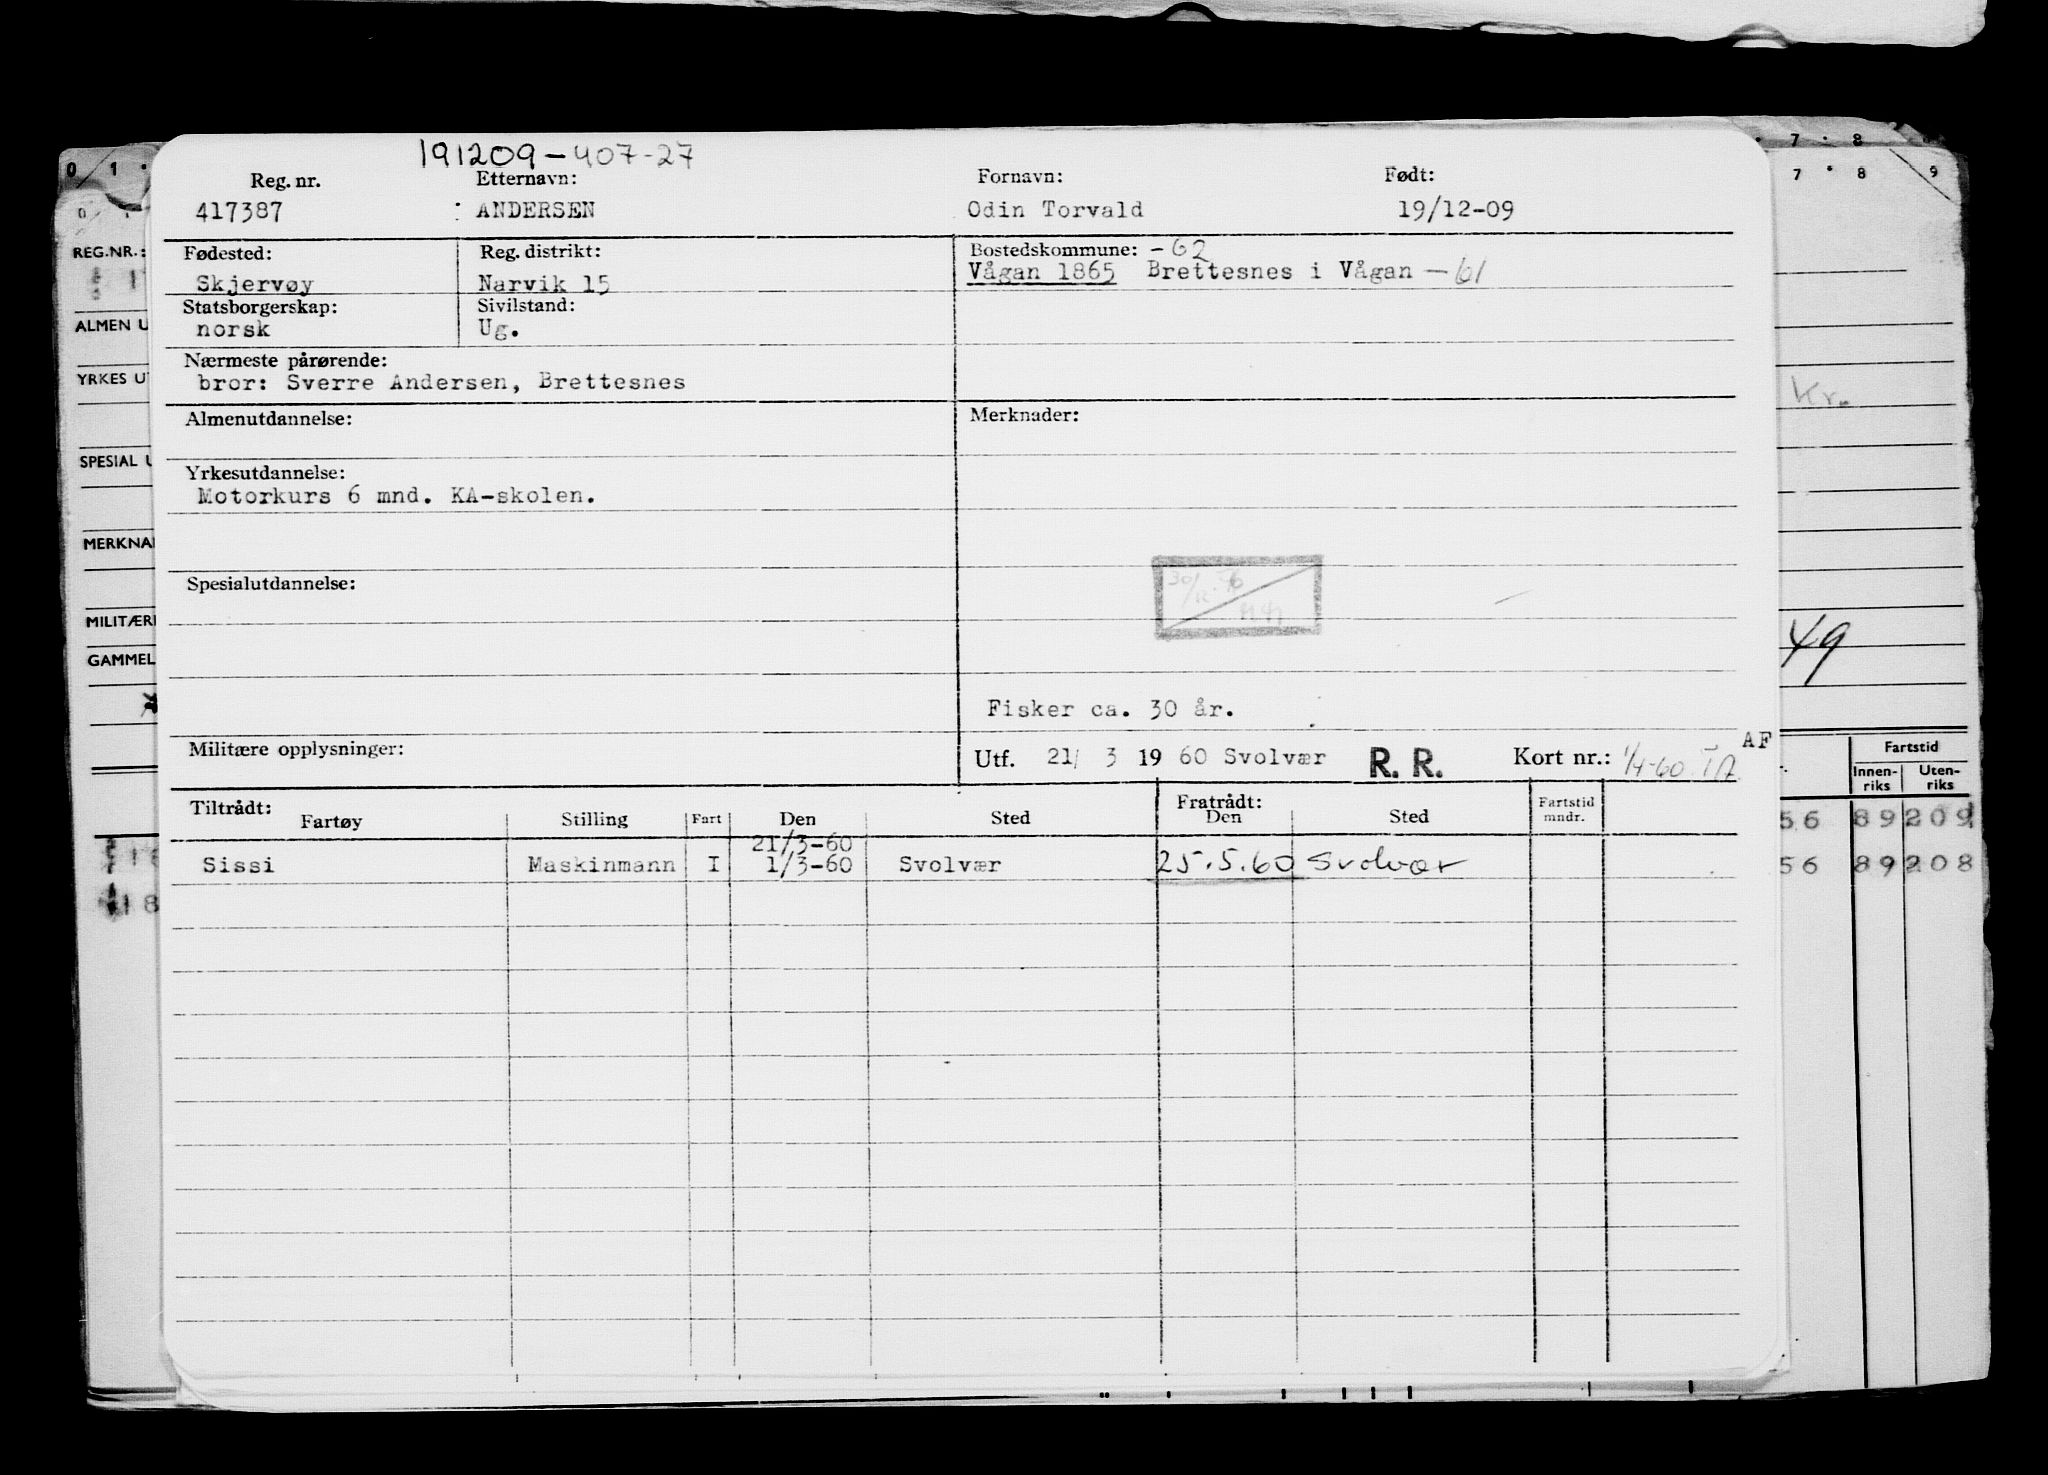 191209-407-27
Reg. nr. Etternavn: Fornavn: Født:
417387 : ANDERSEN Odin Torvald 19/12-09
Fødested: Reg. distrikt: Bostedskommune: -62
Skjervøy Narvik 15 Vågan 1865 Brettesnes i Vågan -61
Statsborgerskap: Sivilstand:
norsk Ug.
Nærmeste pårørende:
bror: Sverre Andersen, Brettesnes
Almenutdannelse: Merknader:
Yrkesutdannelse:
Motorkurs 6 mnd. KA-skolen.
Spesialutdannelse:
Fisker ca. 30 år.
Militære opplysninger: Utf. 21/ 3 19 60 Svolvær R. R. Kort nr.: 1/4-60 AF
Tiltrådt: Fratrådt: Fartstid
Fartøy Stilling Fart Den Sted Den Sted mndr.
21/3-60
Sissi Maskinmann I 1/3-60 Svolvær 25.5.60 Svolvær
0 1
REG.NR.:
ALMEN U
YRKES UT
SPESIAL U
MERKNA
MILITÆRE
GAMMEL
18
7 8
7 8 9
Kr.
49
Fartstid
Innen- Uten-
riks riks
56 89 209
56 89 208